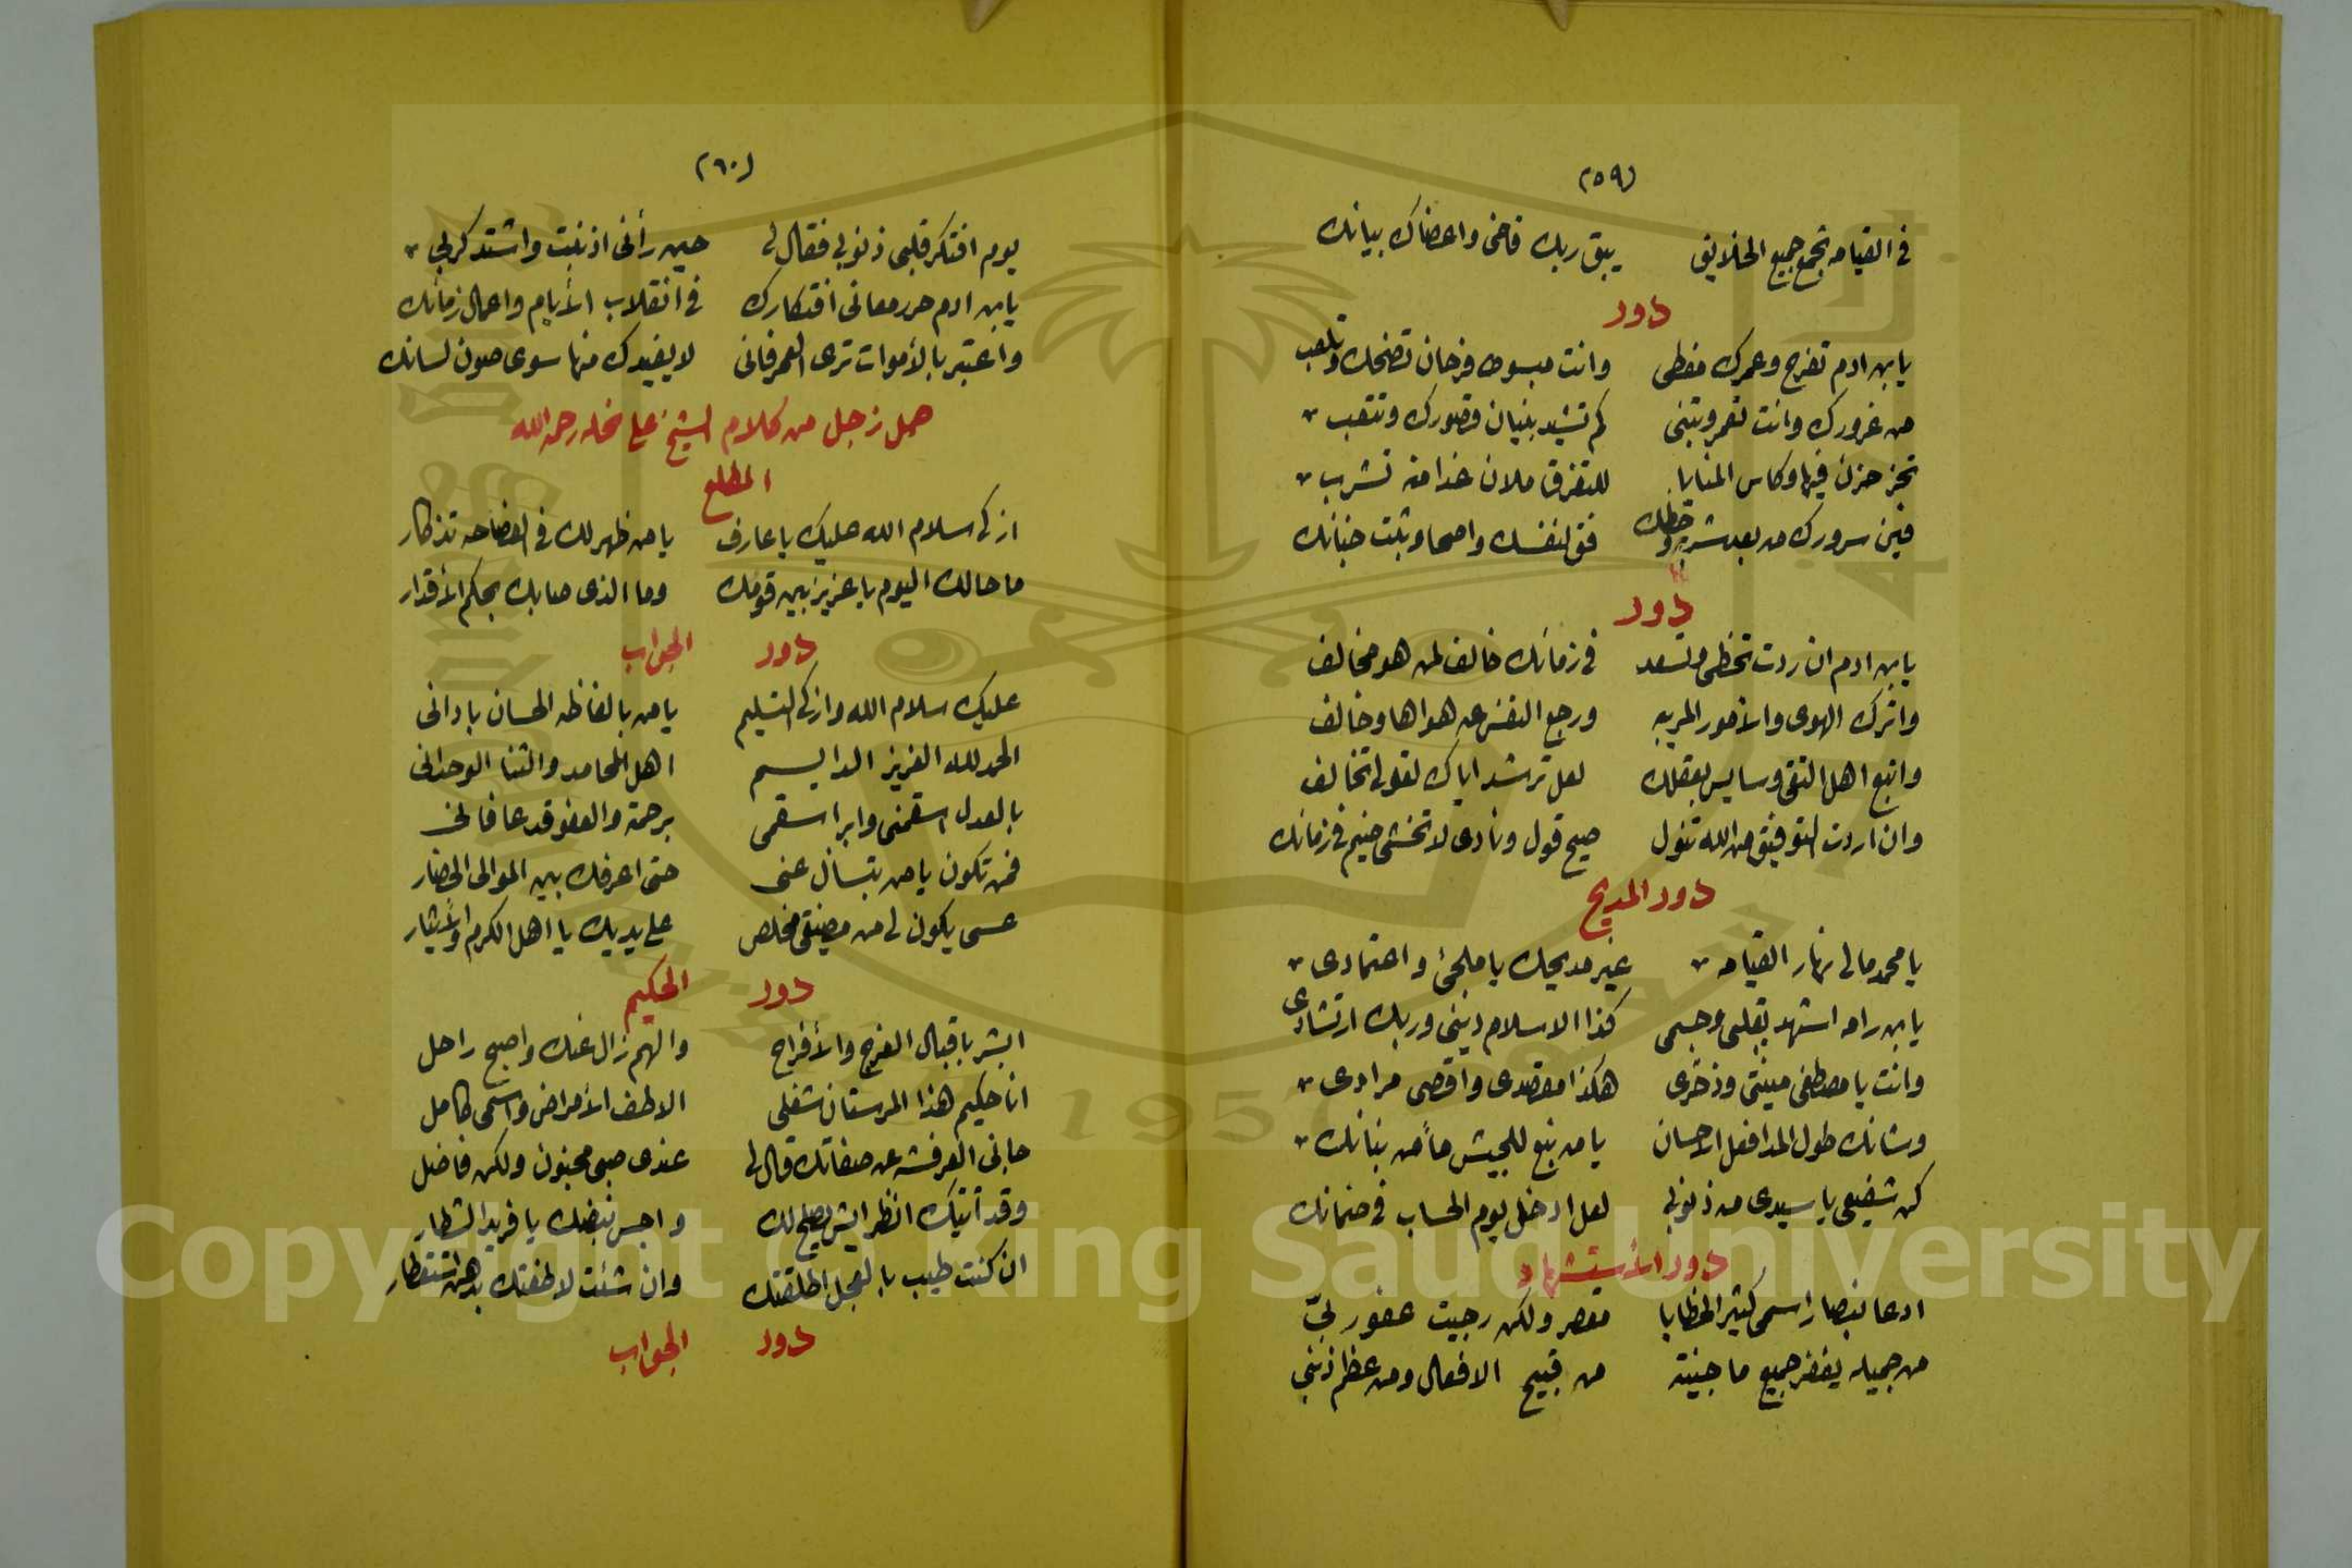 (٥٩)
في القيامه تجمع جميع الخلايق يبق ربك قاضى واعضاك بيانك
دور
يابن ادم تفرح وعمرك مغطى وانت مبسوط فرحان تضحك وتلعب
من غرورك وانت تعمر وتبنى كم تشيد بنيان قصورك وتتعب
حزن فيها وكاس المنايا للتفرق ملان غدا منه تشرب
فين سرورك من بعد شربه وحظك فق لنفسك واصحا وثبت جنانك
دور
يابن ادم ان ردت تحظى وتسعد في زمانك خالف لمن هو مخالف
واترك الهوى والأمور المريبه ورجع النفس عن هواها وخالف
واتبع اهل التقى وسايس بعقلك لعل ترشد اياك لقولى تخالف
وان اردت التوفيق من الله تنول صيح قول ونادى لا تخشى ضيم في زمانك
دور المديح
يا محمد مالى نهار القيامه غير مديحك يا ملجئ واعتمادى
يابن رامه اشهد بقلبى وجسمى كذا الاسلام دينى وربك ارتشادى
وانت يا مصطفى مينتى وذخرى هكذا مقصدى واقصى مرادى
وشانك طول المدا فعل الاحسان يا من نبع للجيش ماً من بنانك
كن شفيعى يا سيدى من ذنوبى لعل ادخل يوم الحساب في ضمانك
دور الأستشهاد
ادعا نصار اسمى كثير الخطايا مقصر ولكن رجيت عفو ربىّ
من جميله يغفر جميع ما جنيته من قبيح الافعال ومن عظم ذنبى
(٦٠)
يوم افتكر قلبى ذنوبى فقال لى حين رأنى اذنبت واشتد كربى
يابن ادم حرر معانى افتكارك في انقلاب الأيام واعمال زمانك
واعتبر بالأموات ترى العمر فانى لا يفيدك منها سوى صون لسانك
حمل زجل من كلام الشيخ على نخله رحمه الله
المطلع
ازكى سلام الله عليك يا عارف يا من ظهر لك في الفصاحه تذكار
ما حالك اليوم يا عزيز بين قومك وما الذى صابك بحكم الأقدار
دور الجواب
عليك سلام الله وازكى التسليم يا من بالفاظه الحسان بادانى
الحمد لله العزيز الدايم اهل المحامد والثنا الوحدانى
بالعدل اسقمنى وابرا سقمى برحمة والعفو قد عافانى
فمن تكون يا من بتسأل عنى حتى اعرفك بين الموالى الحضار
عسى يكون لى من مضيقى مخلص على يديك يا اهل الكرم والأيثار
دور الحكيم
ابشر باقبال الفرج والأفراح والهم زال عنك واصبح راحل
انا حكيم هذا المرستان شغلى الاطف الأمراض واسمى كامل
جانى العرفشه عن صفاتك قال لى عندى صبى مجنون ولكن فاضل
وقد أتيتك انظر ايش يصلح لك واجس نبضك يا فريد الشطار
ان كنت طيب بالعجل اطلقتك وان شئت لاطفتك بدهن استقطار
دور الجواب
Copyright © King Saud University
1957